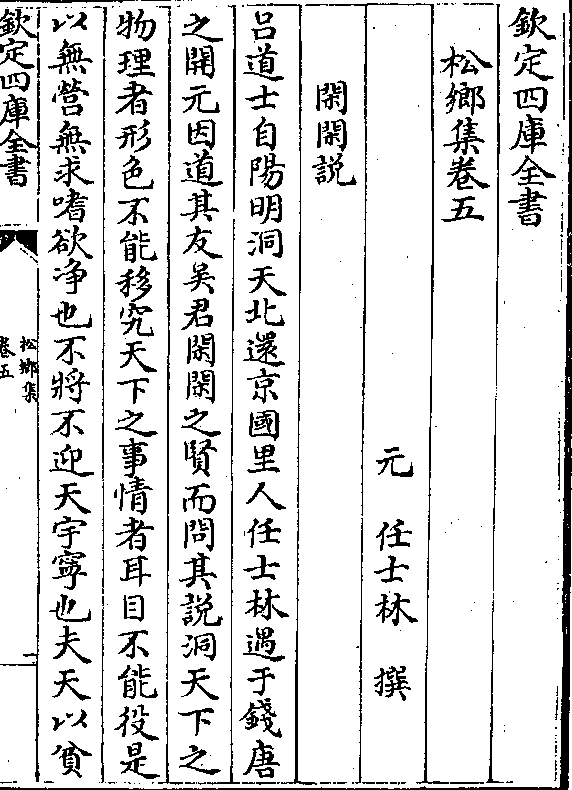 欽定四庫全書
松鄉集卷五
元 任士林 撰
閑閑説
吕道士自陽明洞天北還京國里人任士林遇于錢唐
之開元因道其友吳君閑閑之賢而問其説洞天下之
物理者形色不能移究天下之事情者耳目不能役是
以無營無求嗜欲净也不將不迎天宇寧也夫天以貧
欽定四庫全書
松鄉集
卷五
一